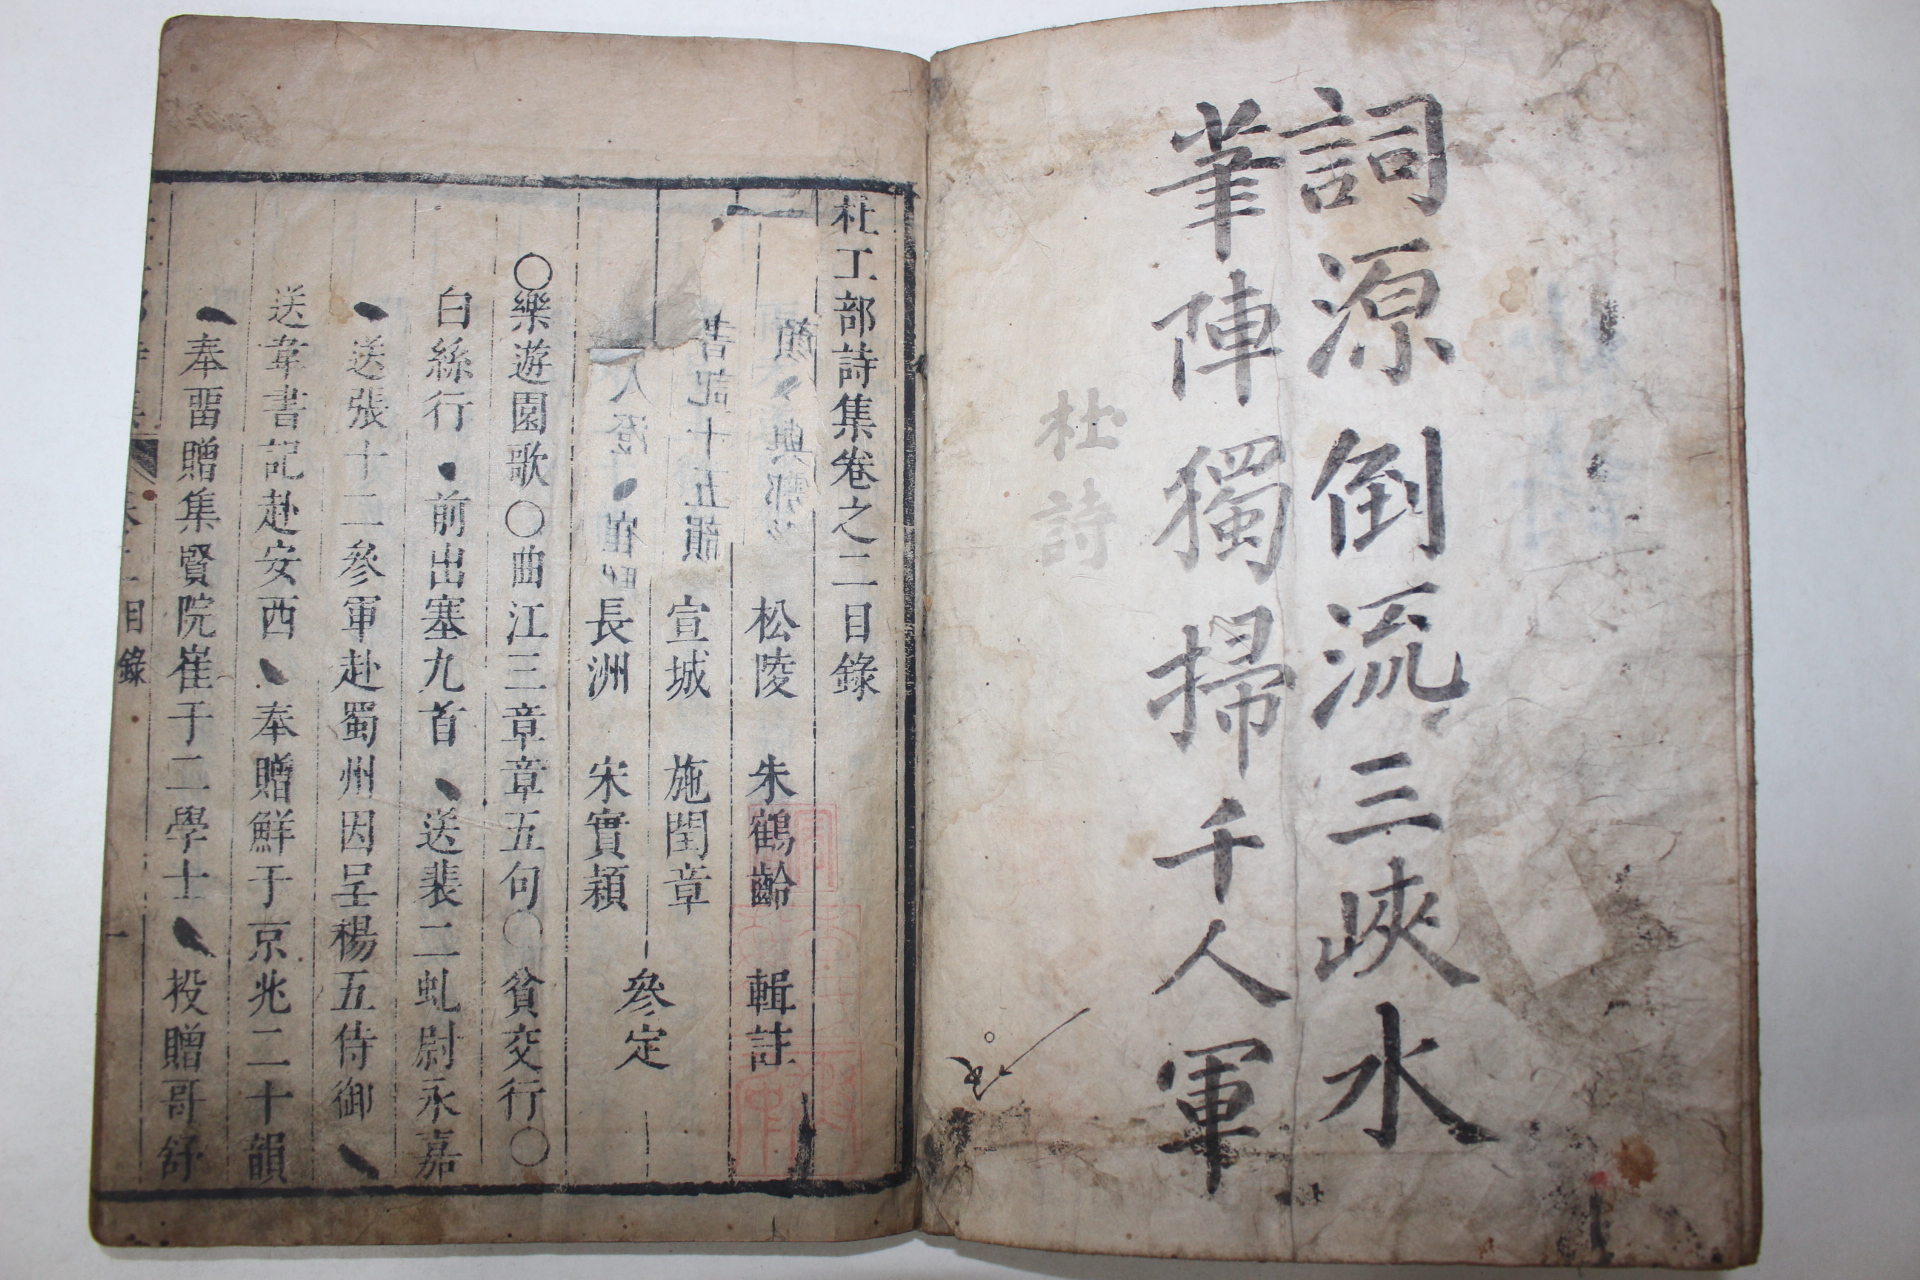 詞源倒流三峽水
筆陣獨掃千人軍
杜詩
杜工部詩集卷之二目錄
松陵 朱鶴齡 輯註
宣城 施閏章
參定
長洲 宋實穎
○樂遊園歌○曲江三章章五句○貧交行○
白絲行 前出塞九首 送裴二虬尉永嘉
送張十二參軍赴蜀州因呈楊五侍御
送韋書記赴安西 奉贈鮮于京兆二十韻
奉畱贈集賢院崔于二學士 投贈哥舒
顏 與鄠
書記十五韻
人 崔
目錄
一